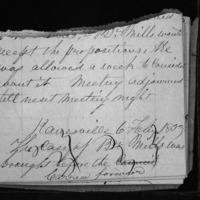 Mills would
accept the propositions. He
was allowed a week to consider
about it Meeting adjourned
till next Meeting night
6 Feby
The case of Br Mills was
brought before the council